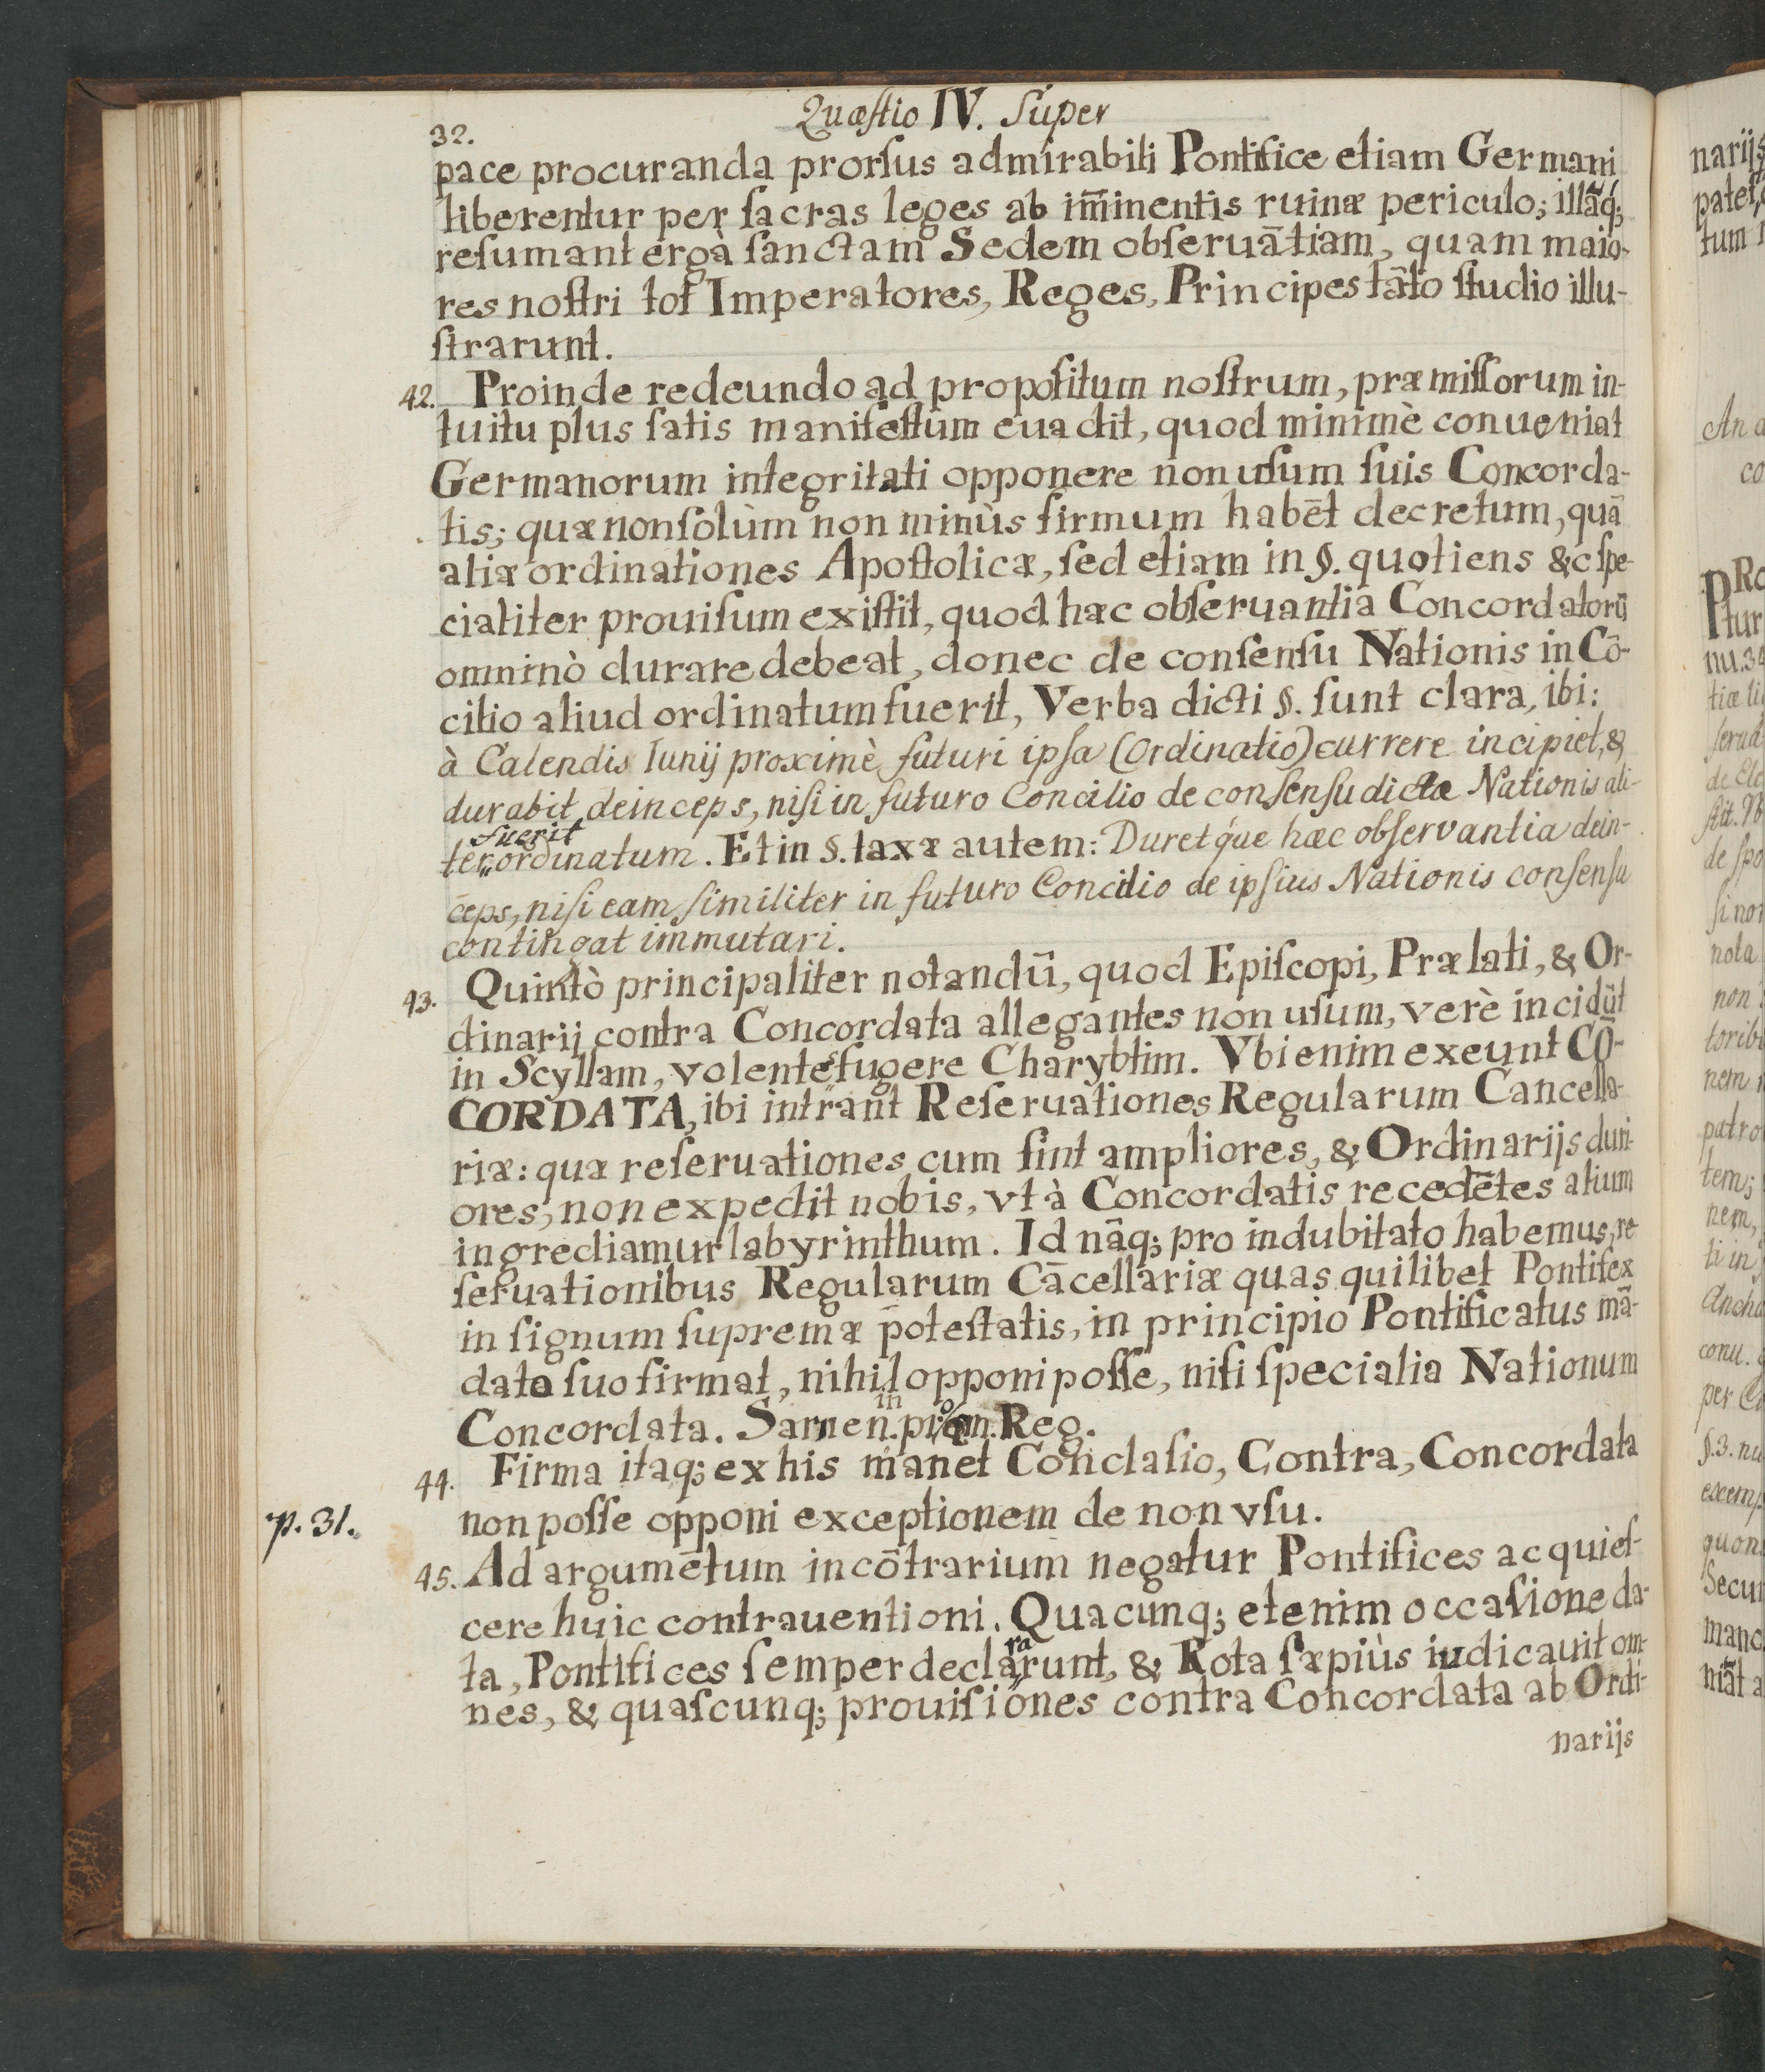 Quæſtio IV. Super
32.
pace procuranda prorſus admirabili Pontifice etiam Germani
liberentur per ſacras leges ab im̄inentis ruinæ periculo; illāq;
reſumant ergà ſanctam Sedem obſeruātiam, quam maio-
res noſtri tot Imperatores, Reges, Principes tāto ſtudio illu-
ſtrarunt.
42. Proinde redeundo ad propoſitum noſtrum, præmiſſorum in-
tuitu plus ſatis manifeſtum euadit, quod minimè conueniat
Germanorum integritati opponere non uſum ſuis Concorda-
tis; quæ non ſolùm non minùs firmum habēt decretum, quā
aliæ ordinationes Apoſtolicæ, ſed etiam in §. quotiens &c ſpe-
cialiter prouiſum exiſtit, quod hæc obſeruantia Concordatorū
omninò durare debeat, donec de conſenſu Nationis in Cō-
cilio aliud ordinatum fuerit, Verba dicti §. ſunt clara, ibi:
à Calendis Iunij proximè futuri ipſa (Ordinatio) currere incipiet, &
durabit deinceps, niſi in futuro Concilio de conſenſu dictæ Nationis ali-
fuerit
ter„ordinatum. Et in §. taxæ autem: Duretq́ue hæc obſervantia dein-
ceps, niſi eam ſimiliter in futuro Concilio de ipſius Nationis conſenſu
contingat immutari.
43. Quintò principaliter notandū, quod Epiſcopi, Prælati, & Or-
dinarij contra Concordata allegantes non uſum, verè incidūt
in Scyllam, volentes fugere Charybtim. Vbi enim exeunt CŌ-
CORDATA, ibi intrant Reſeruationes Regularum Cancella-
riæ: quæ reſeruationes cum ſint ampliores, & Ordinarijs duri-
ores; non expedit nobis, vt à Concordatis recedētes alium
ingrediamur labyrinthum. Id nāq; pro indubitato habemus, re
ſeruationibus Regularum Cācellariæ quas quilibet Pontifex
in ſignum ſupremæ poteſtatis, in principio Pontificatus mā-
dato ſuo firmat, nihil opponi poſſe, niſi ſpecialia Nationum
in
Concordata. Sarnen. proem. Reg.
44. Firma itaq; ex his manet Concluſio, Contra, Concordata
p. 31.
non poſſe opponi exceptionem de non vſu.
45. Ad argumētum in cōtrarium negatur Pontifices acquieſ-
cere huic contrauentioni. Quacunq; etenim occaſione da-
ra
ta, Pontifices ſemper decla„runt, & Rota ſæpiùs iudicauit om-
nes, & quaſcunq; prouiſiones contra Concordata ab Ordi-
narijs